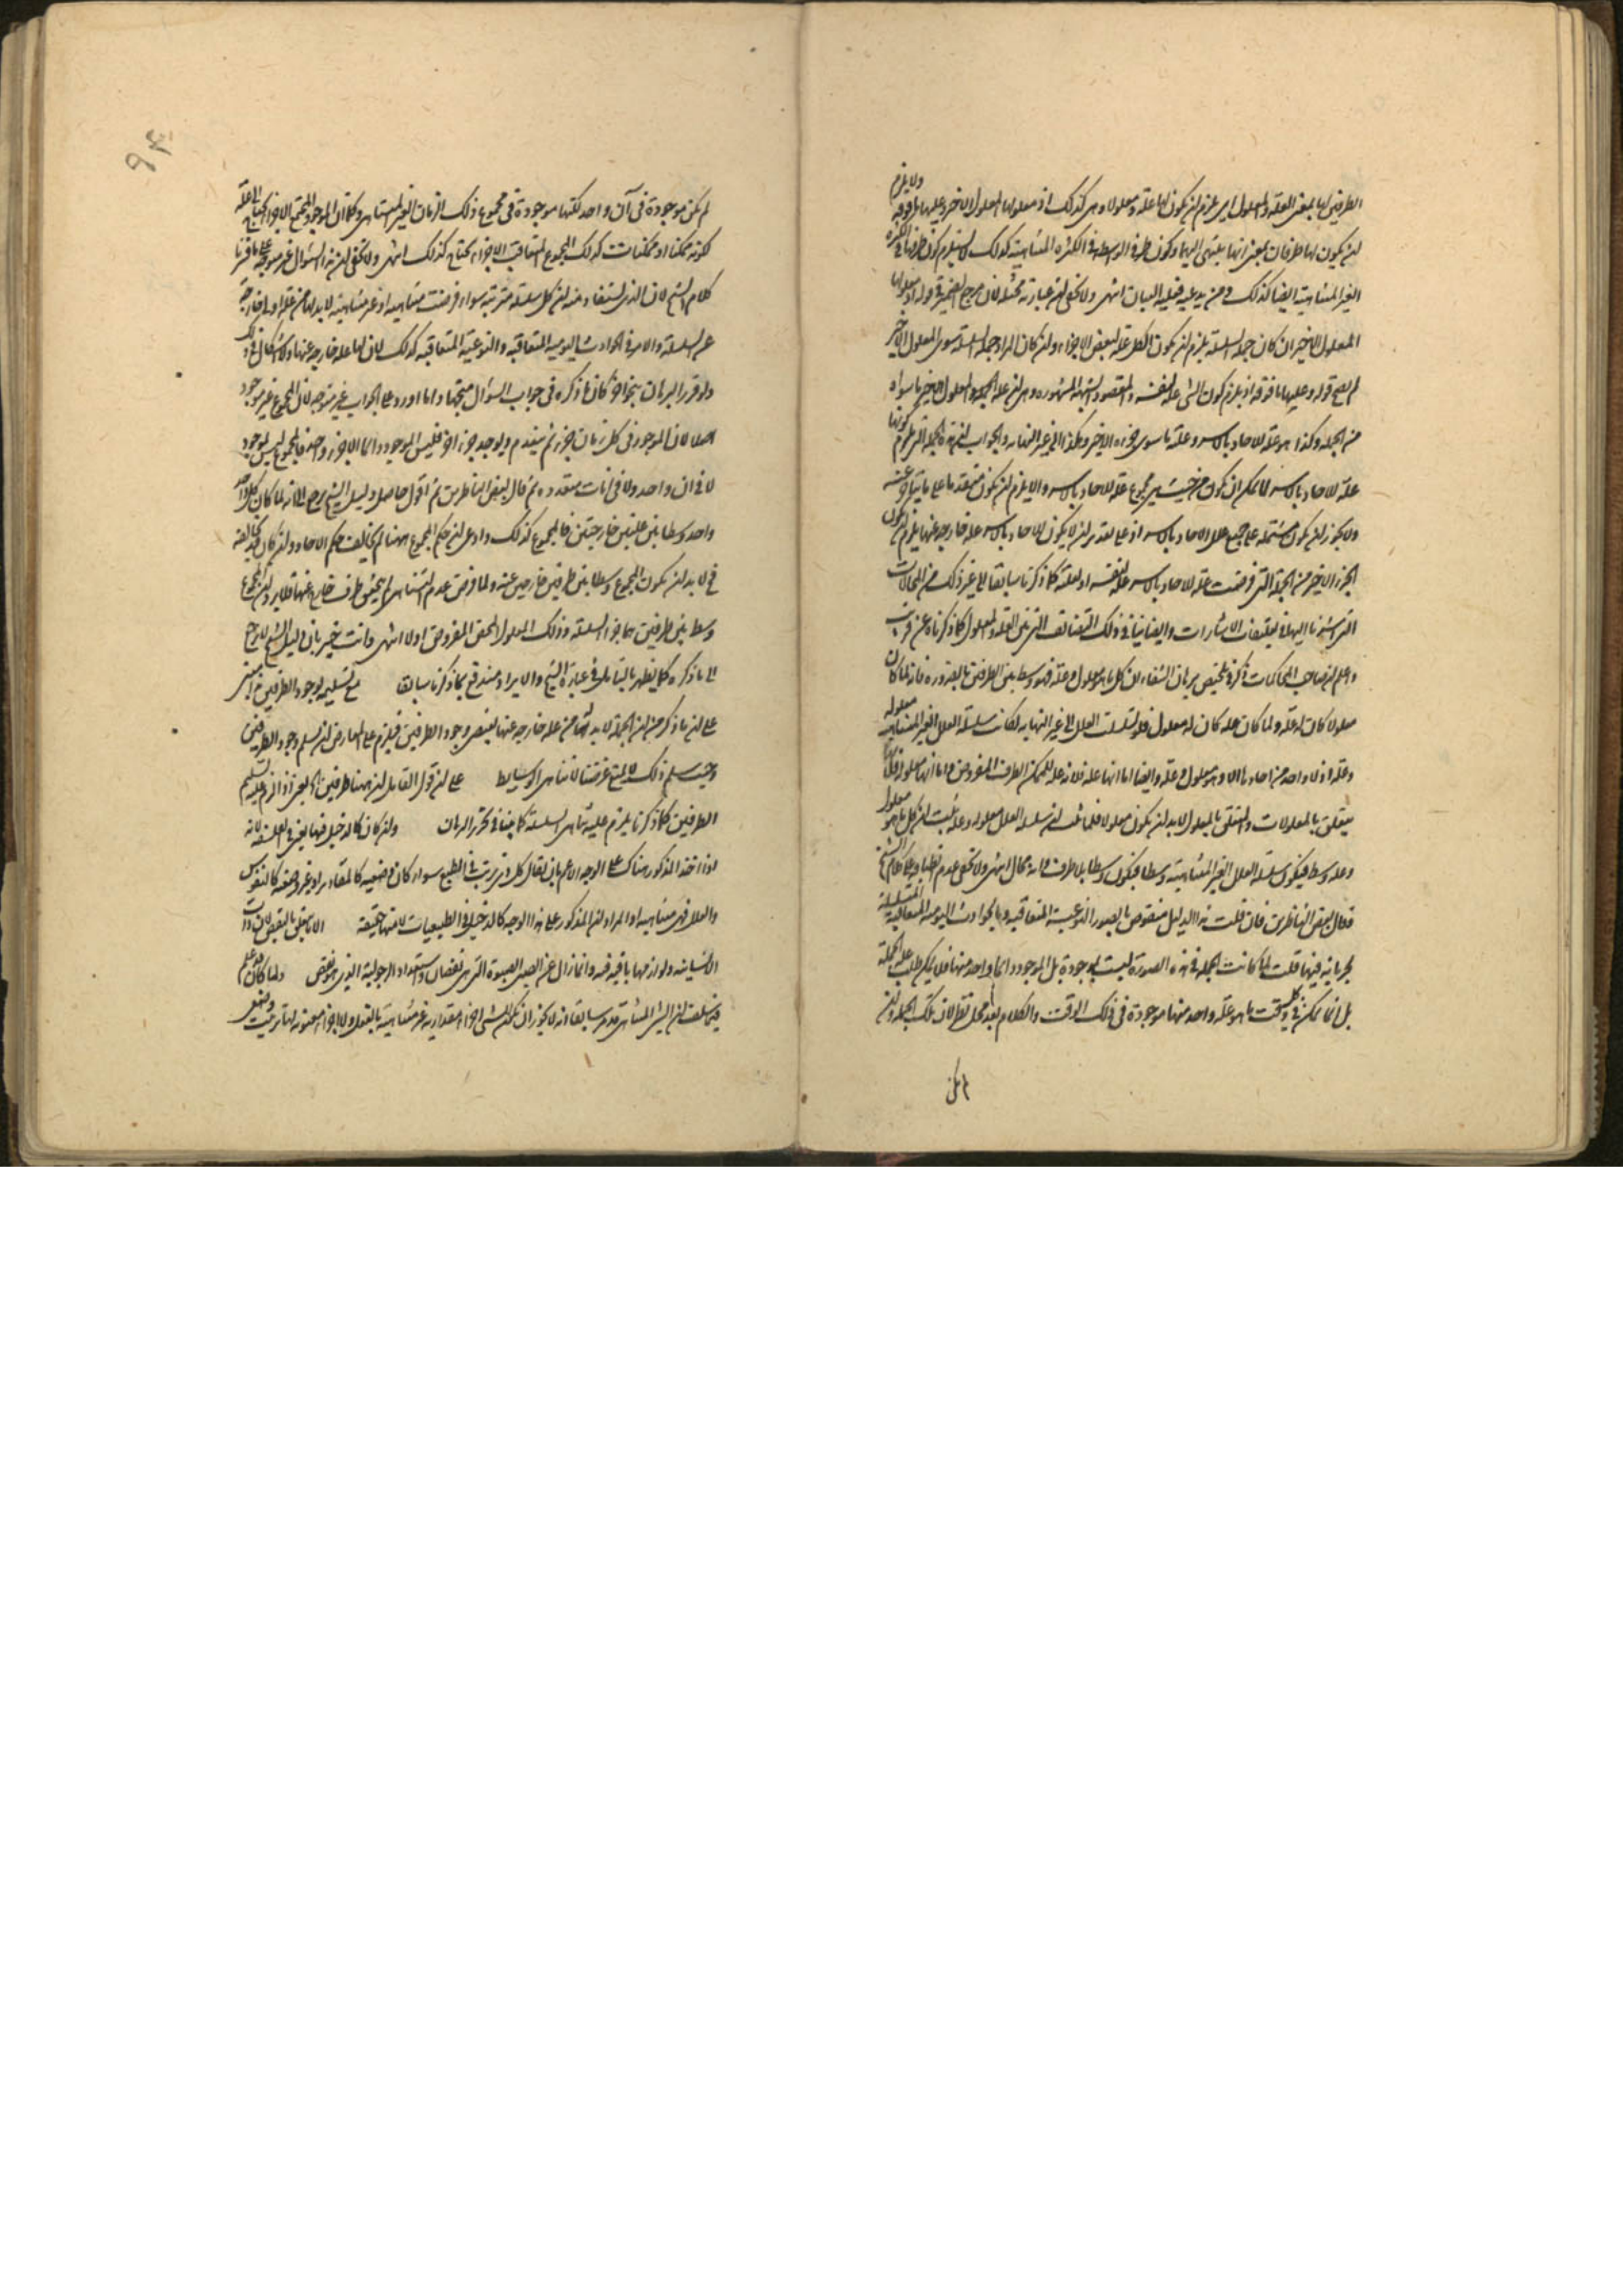 الطرفين لها بمعنى العلة والمعلول اى يلزم ان يكون لها علة ومعلول وهى كذلك اذ معلولها المعلول الاخير وعليها ما فوقه ولا يلزم
ان يكون لها طرفان بمعنى انها ينتهى اليهما وكون طرفى الوسط فى الكثرة المتناهية كذلك لا يستلزم كون طرفها فى الكثرة
الغير المتناهية ايضا كذلك ومن يدعيه فعليه البيان انتهى ولا يخفى ان عبارته مختلة لان مرجع الضمير فى قوله اذ معلولها
المعلول الاخير ان كان جملة السلسلة يلزم ان يكون الكل علة لبعض الاجزاء وان كان المراد جملة السلسلة سوى المعلول الاخير
لم يصح قوله وعليها ما فوقه اذ يلزم كون الشئ علة لنفسه والمقصود الشبهة المشهورة وهى ان علة الجملة والمعلول الاخير ما سواه
من الجملة وكذا هو علة للاحاد بالاسر وعلة ما سوى جزءه الاخير وهكذا الى غير النهاية والجواب ان هذه الجملة التى يلزم كونها
علة للاحاد بالاسر لا يمكن ان يكون من حيث هى مجموع علة للاحاد بالاسر والا يلزم ان يكون متقدما على ما يتاخر عنه
ولا يجوز ان يكون مشتملة على جميع علل الاحاد بالاسر اذ على تقدير ان لا يكون للاحاد بالاسر علة خارجة عنها يلزم ان يكون
الجزء الاخير من الجملة التى فرضت علة للاحاد بالاسر علة لنفسه او لعلته كما ذكرنا سابقا الى غير ذلك من المحالات
التى اشرنا اليها فى تعليقات الاشارات وايضا ينافى ذلك التضايف الذى بين العلة والمعلول كما ذكرناه عن قريب
واعلم ان صاحب المحاكمات ذكر فى تلخيص برهان الشفاء ان كل ما هو معلول وعلة فهو وسط بين الطرفين بالضرورة فانه لما كان
معلولا كان له علة ولما كان علة كان له معلول فلو تسلسلت العلل الى غير النهاية لكانت سلسلة العلل الغير المتناهية معلولة
وعلة اذ لا واحد من احادها الا وهو معلول وعلة وايضا اما انها علة فلانه علة للممكن الطرف المفروض واما انها معلولة فلانها
يتعلق بالمعلولات والمتعلق بالمعلول لابد ان يكون معلولا فلما ثبت ان سلسلة العلل معلولة وعلة وثبت ان كل ما هو معلول
وعلة وسط فيكون سلسلة العلل الغير المتناهية وسطا فيكون وسطا بلا طرف وانه محال انتهى ولا يخفى عدم انطباقه على كلام الشيخ
فقال بعض الناظرين فان قلت هذا الدليل منقوض بالصور النوعية المتعاقبة وبالحوادث اليومية المتعاقبة المتسلسلة
لجريانه فيها قلت لما كانت الجملة فى هذه الصورة ليست بموجودة بل الموجود دائما واحد منها فلا يمكن طلب علة الجملة
بل انما يمكن فى كل وقت ما هو علة واحد منها موجودة فى ذلك الوقت والكلام بعد محل نظر لان تلك الجملة وان
لم يكن
لم يكن موجودة فى آن واحد لكنها موجودة فى مجموع ذلك الزمان الغير المتناهى وكما ان الموجود المجتمع الاجزاء يحتاج الى علة
لكونه ممكنا او ممكنات كذلك المجموع المتعاقب الاجزاء يحتاج كذلك انتهى ولا يخفى ان هذا السؤال غير موجه على ما قررنا
كلام الشيخ لان الذى يستفاد منه ان كل سلسلة مترتبة سواء فرضت متناهية او غير متناهية لابد لها من علة اولى خارجة
عن السلسلة والامر فى الحوادث اليومية المتعاقبة والنوعية المتعاقبة كذلك لان لها علة خارجة عنها ولا اشكال فى ذلك
ولو قرر البرهان بنحو آخر كان ما ذكره فى جواب السؤال متجها واما ما اورده على الجواب غير متوجه لان المجموع غير موجود
اصلا لان الموجود فى كل زمان جزء ثم ينعدم ويوجد جزء آخر فليس الموجود دائما الا جزء واحد فالمجموع ليس بموجود
لا فى آن واحد ولا فى آنات متعددة ثم قال بعض الناظرين ثم اقول حاصل دليل الشيخ يرجع الى انه لما كان كل واحد
واحد وسطا بين علتين خارجتين فالمجموع كذلك وادعى ان حكم المجموع ههنا لم يخالف حكم الاحاد وان كان قد يخالفه
فح لابد ان يكون المجموع وسطا بين طرفين خارجين عنه ولما فرض عدم التناهى لم يتحقق طرف خارج عنها فلا يرد ان المجموع
وسط بين طرفين هما جزءا السلسلة وذلك المعلول المحض المفروض اولا انتهى وانت خبير بان دليل الشيخ لا يرجع
الى ما ذكره كما يظهر بالتأمل فى عبارة الشيخ والايراد مندفع بما ذكرنا سابقا مع تسليم وجود الطرفين
على ان ما ذكر من ان الجملة لابد لها من علة خارجة عنها يقتضى وجود الطرفين فيلزم على المعارض ان يسلم وجود الطرفين
وحيث سلم ذلك لا يمنع غرضنا لاتناهى الوسايط على ان قول القايل ان ههنا طرفين اذا الزم عليه تسليم
الطرفين كما ذكرنا يلزم عليه تناهى السلسلة كما بينا فى تحرير البرهان وان كان كالدخيل فيها لانه
اذا اخذ المذكور هناك على الوجه الاعم بان يقال كل ذى ترتيب فى الطبع سواء كان وضعيه كالمقادير او غير وضعيه كالنفوس
والعلل فهى متناهية او المراد ان المذكور على هذا الوجه كالدخيل فى الطبيعيات لا منها حقيقة الا ما يتعلق بالنقص لان ذات
الانسانية ولوازمها باقية فيه وانما زال عن الصبى الصبوة التى هى نقصان واستعداد الرجولية الذى هو نقص ولما كان قد علم
فيما سلف ان الشئ المتناهى قد مر سابقا انه لا يجوز ان يكون للشئ اجزاء مقدارية غير متناهية بالفعل ولا اجزاء معنوية لها ترتيب